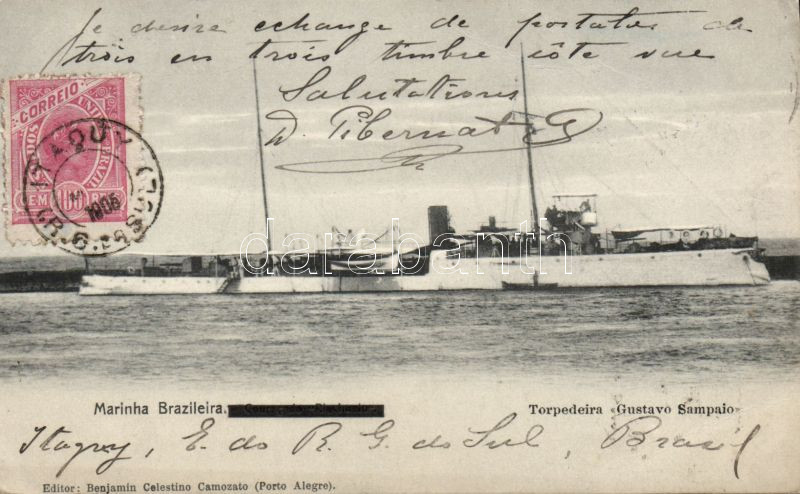 Je desire echange de postales de
trois en trois timbre côte vue
Salutations
CORREIO
100 REIS
ITAQUY
1906
(R.G. DO SUL)
darabanth
Marinha Brazileira. Torpedeira Gustavo Sampaio
Itaquy, E. do R. G. do Sul, Brasil
Editor: Benjamin Celestino Camozato (Porto Alegre).